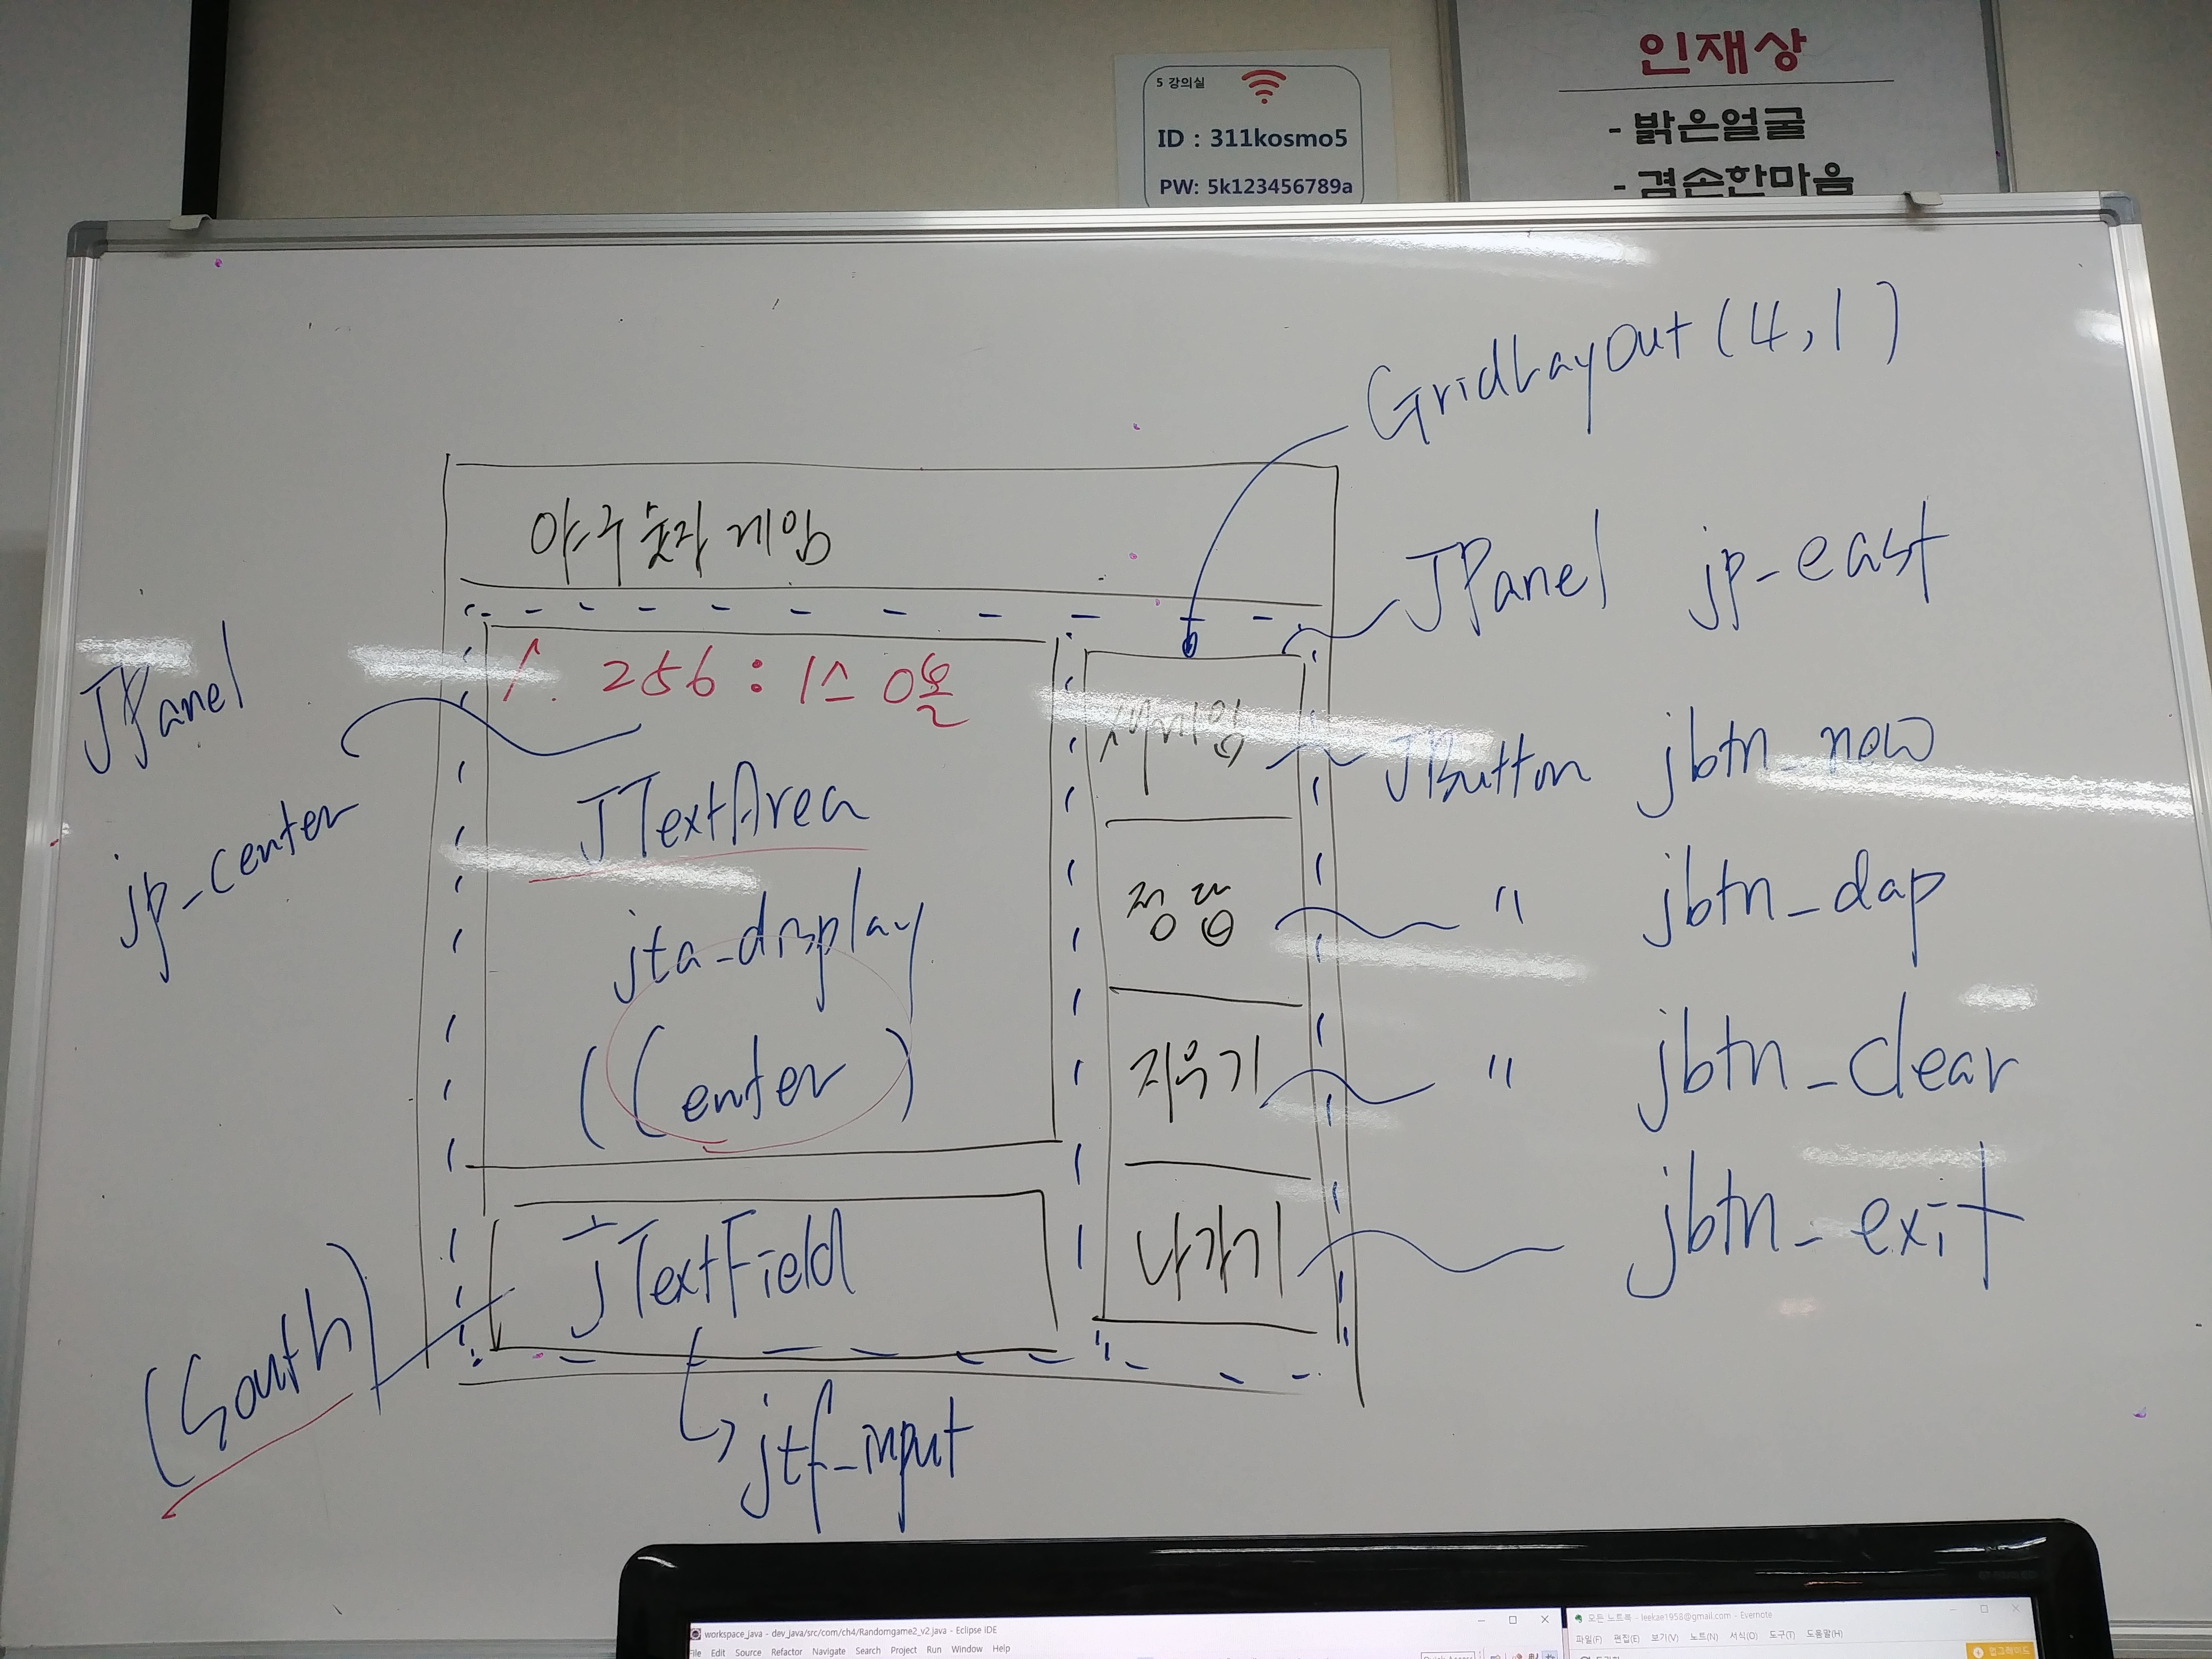 5 강의실
ID : 311kosmo5
PW: 5k123456789a
인재상
- 밝은얼굴
- 겸손한마음
GridLayout(4,1)
야구숫자게임
JPanel jp_east
1. 256 : 1스 0볼
JPanel
jp_center
새게임
JButton jbtn_new
JTextArea
jta_display
(Center)
정답
" jbtn_dap
지우기
" jbtn_clear
나가기
jbtn_exit
JTextField
(South)
jtf_input
workspace_java - dev_java/src/com/ch4/Randomgame2_v2.java - Eclipse IDE
File Edit Source Refactor Navigate Search Project Run Window Help
모든 노트북 - leekae1958@gmail.com - Evernote
파일(F) 편집(E) 보기(V) 노트(N) 서식(O) 도구(T) 도움말(H)
업그레이드